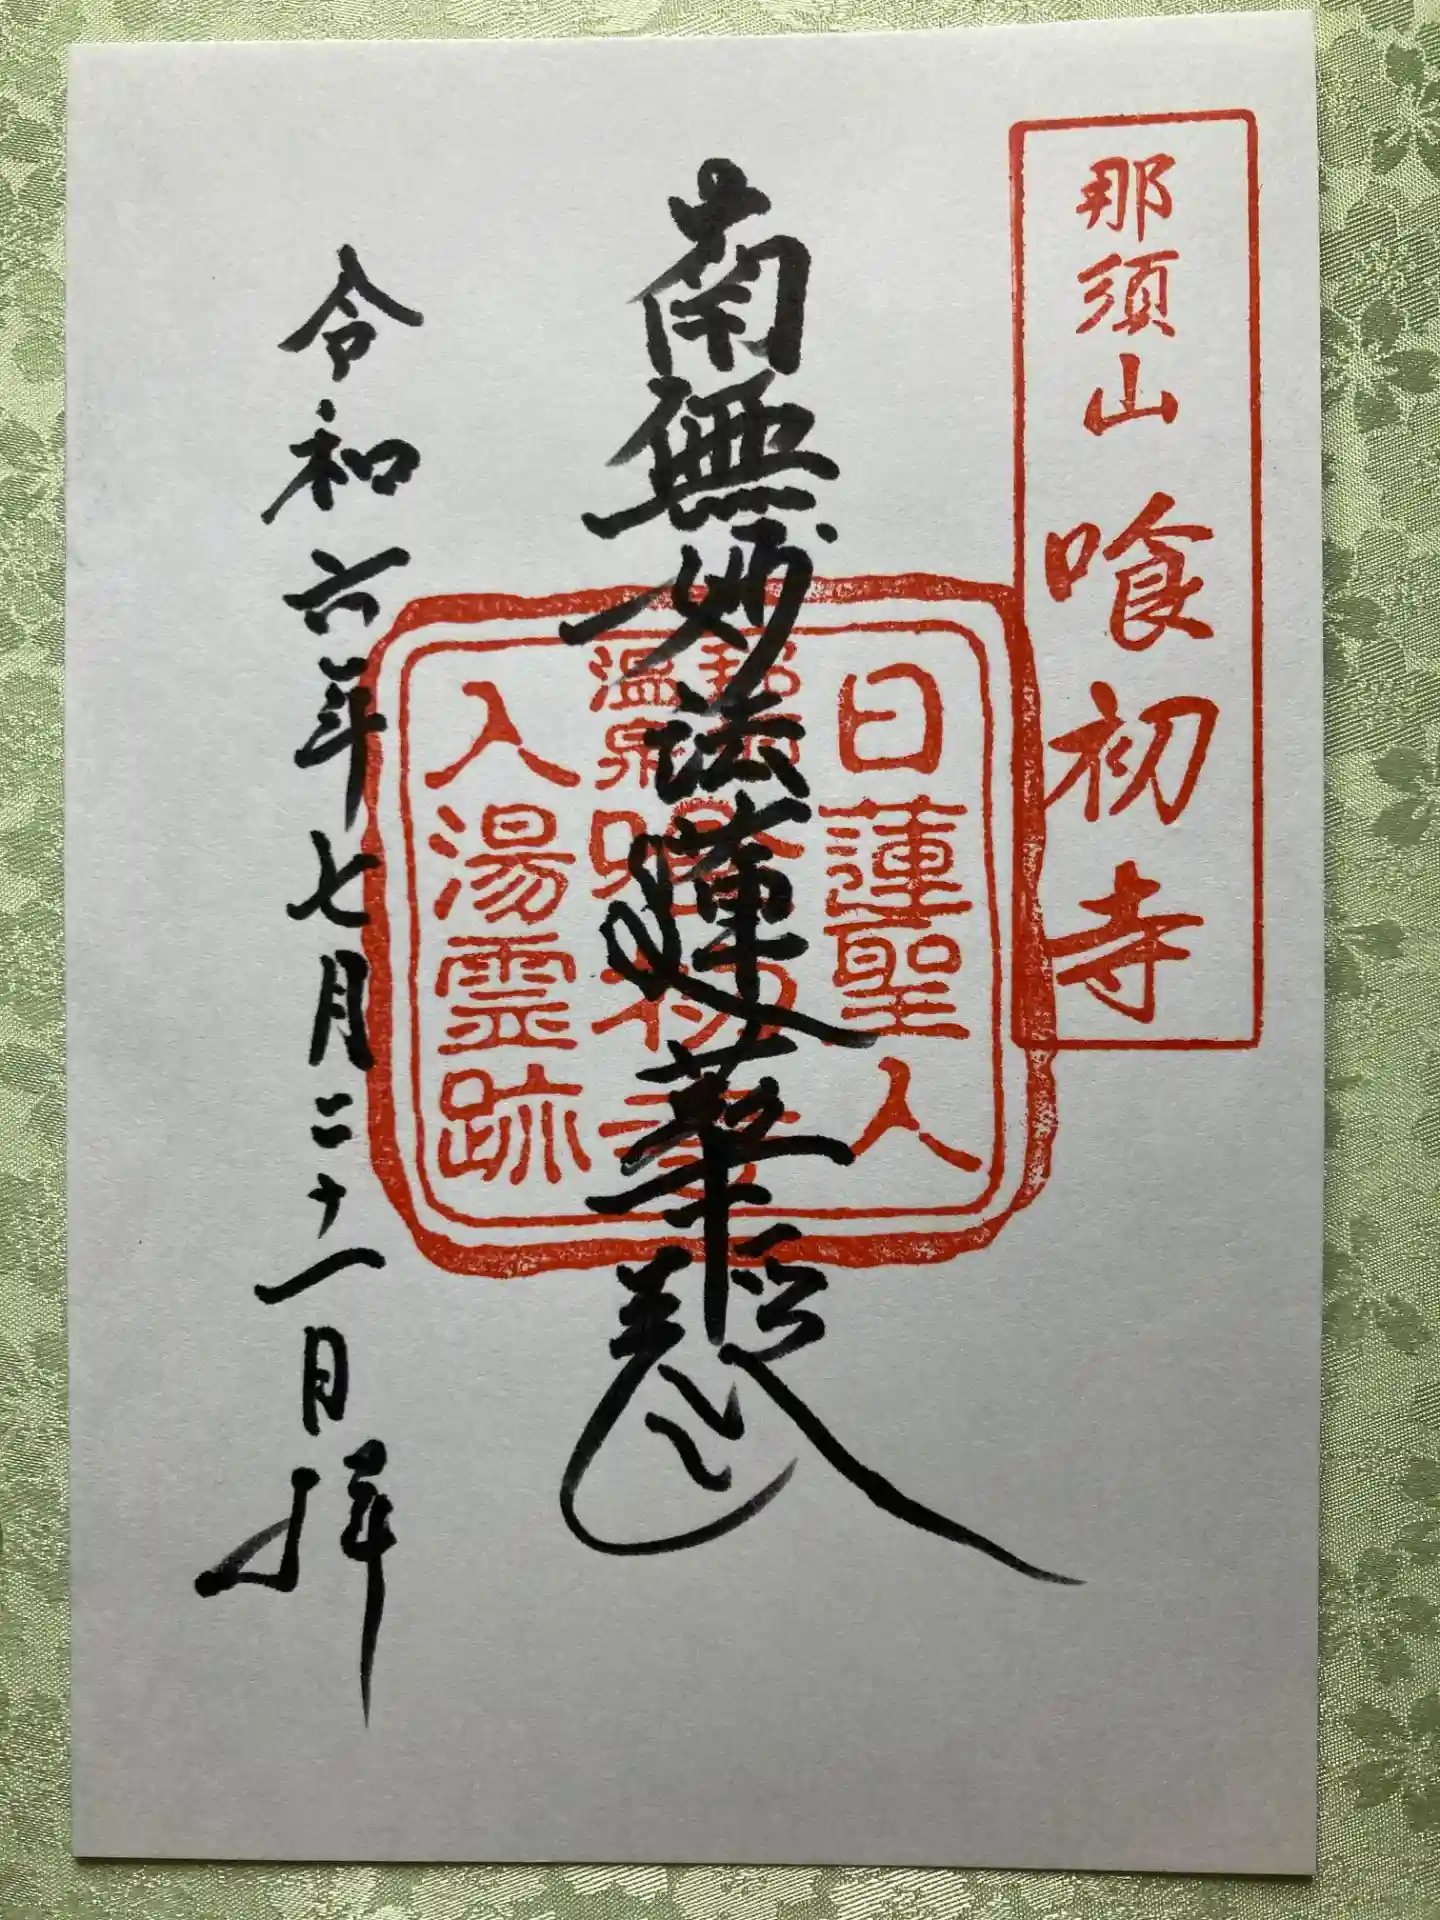 那須山 喰初寺
南無妙法蓮華経
日蓮聖人
那須
温泉
喰初寺
入湯霊跡
令和六年七月二十一日拝